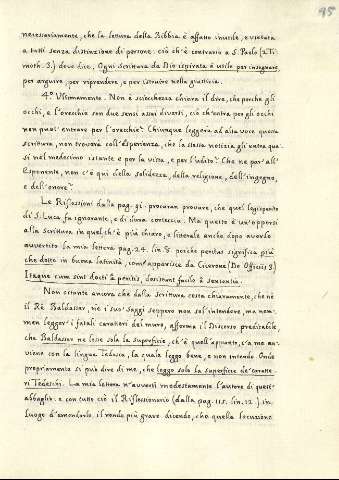 95
necessariamente, che la lettura della Bibbia è affatto inutile, e vietata
a tutti senza distinzione di persone. ciò ch'è contrario a S. Paolo (2. Ti-
moth. 3.) dove dice, Ogni scrittura da Dio ispirata è utile per insegnare
per arguire, per riprendere, e per istruire nella giustizia.
4.° Ultimamente. Non è sciocchezza chiara il dire, che perché gli
occhi, e l'orecchie son due sensi assai diversi, ciò ch'entra per gli occhi
non può entrare per l'orecchie? Chiunque leggerà ad alta voce questa
scrittura, non troverà coll'esperienza, che la stessa notizia gli entra qua-
si nel medesimo istante e per la vista, e per l'udito? Che ne par all'
Esponente, non c'è qui della solidezza, della religione, dell'ingegno,
e dell'onore?
Le Riflessioni dalla pag. 91. procuran provare, che quel legisperito
di S. Luca fa ignorante, e di stima corteccia. Ma questo è un'apporsi
alla scrittura in quel, ch'è più chiaro, e literale anche dopo averlo
avvertito la mia lettera pag. 24. lin. 8. poiché peritus significa più
che dotto in buona latinità, com'apparisce da Cicerone (De Officiis 3.)
Itaque cum sint docti à peritis, desistunt facilè à sententia.
Non ostante ancora che dalla scrittura costa chiaramente, che nè
il Rè Baldassar, nè i suoi saggi seppero non sol intendere, ma nem-
men legger i fatali caratteri del muro, afferma il Discorso predicabile,
che Baldassar ne lesse sola la superficie, ch'è quell'appunto, c'a me av-
viene con la lingua Tedesca, la quale leggo bene, e non intendo. Onde
propriamente si può dire di me, che leggo solo la superficie de' caratte-
ri Tedeschi. La mia lettera n'avvertì modestamente l'autore di quest'
abbaglio: e con tutto ciò il Riflessionario (dalla pag. 115. lin. 12.) in
luogo d'emendarlo, il rende più grave dicendo, che quella locuzione